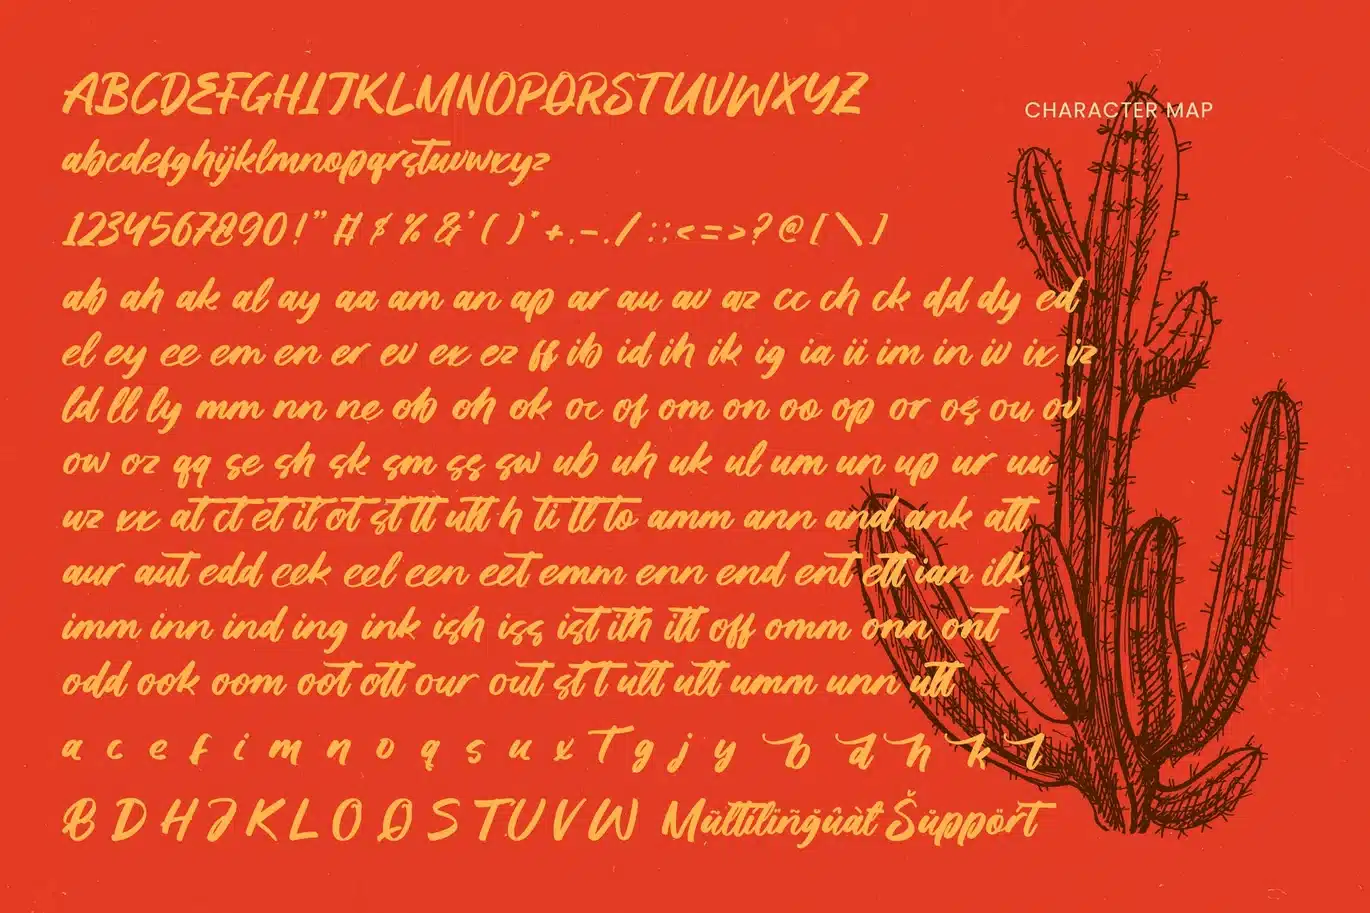 ABCDEFGHIJKLMNOPQRSTUVWXYZ
CHARACTER MAP
abcdefghijklmnopqrstuvwxyz
1234567890!"#$%&'()*+,-./:;<=>?@[\]
ab ah ak al ay aa am an ap ar au av az cc ch ck dd dy ed
el ey ee em en er ev ex ez ff ib id ih ik ig ia ii im in iv ix iz
ld ll ly mm nn ne ob oh ok oc of om on oo op or os ou ov
ow oz qq se sh sk sm ss sw ub uh uk ul um un up ur uu
uz xx at ct et it ot st tt utt h ti tl to amm ann and ank att
aur aut edd eek eel een eet emm enn end ent ett ian ilk
imm inn ind ing ink ish iss ist ith itt off omm onn ont
odd ook oom oot ott our out st t ult utt umm unn utt
a c e f i m n o q s u x T g j y b d h k l
B D H J K L O Q S T U V W Mũltilïñğûàt Šüppört